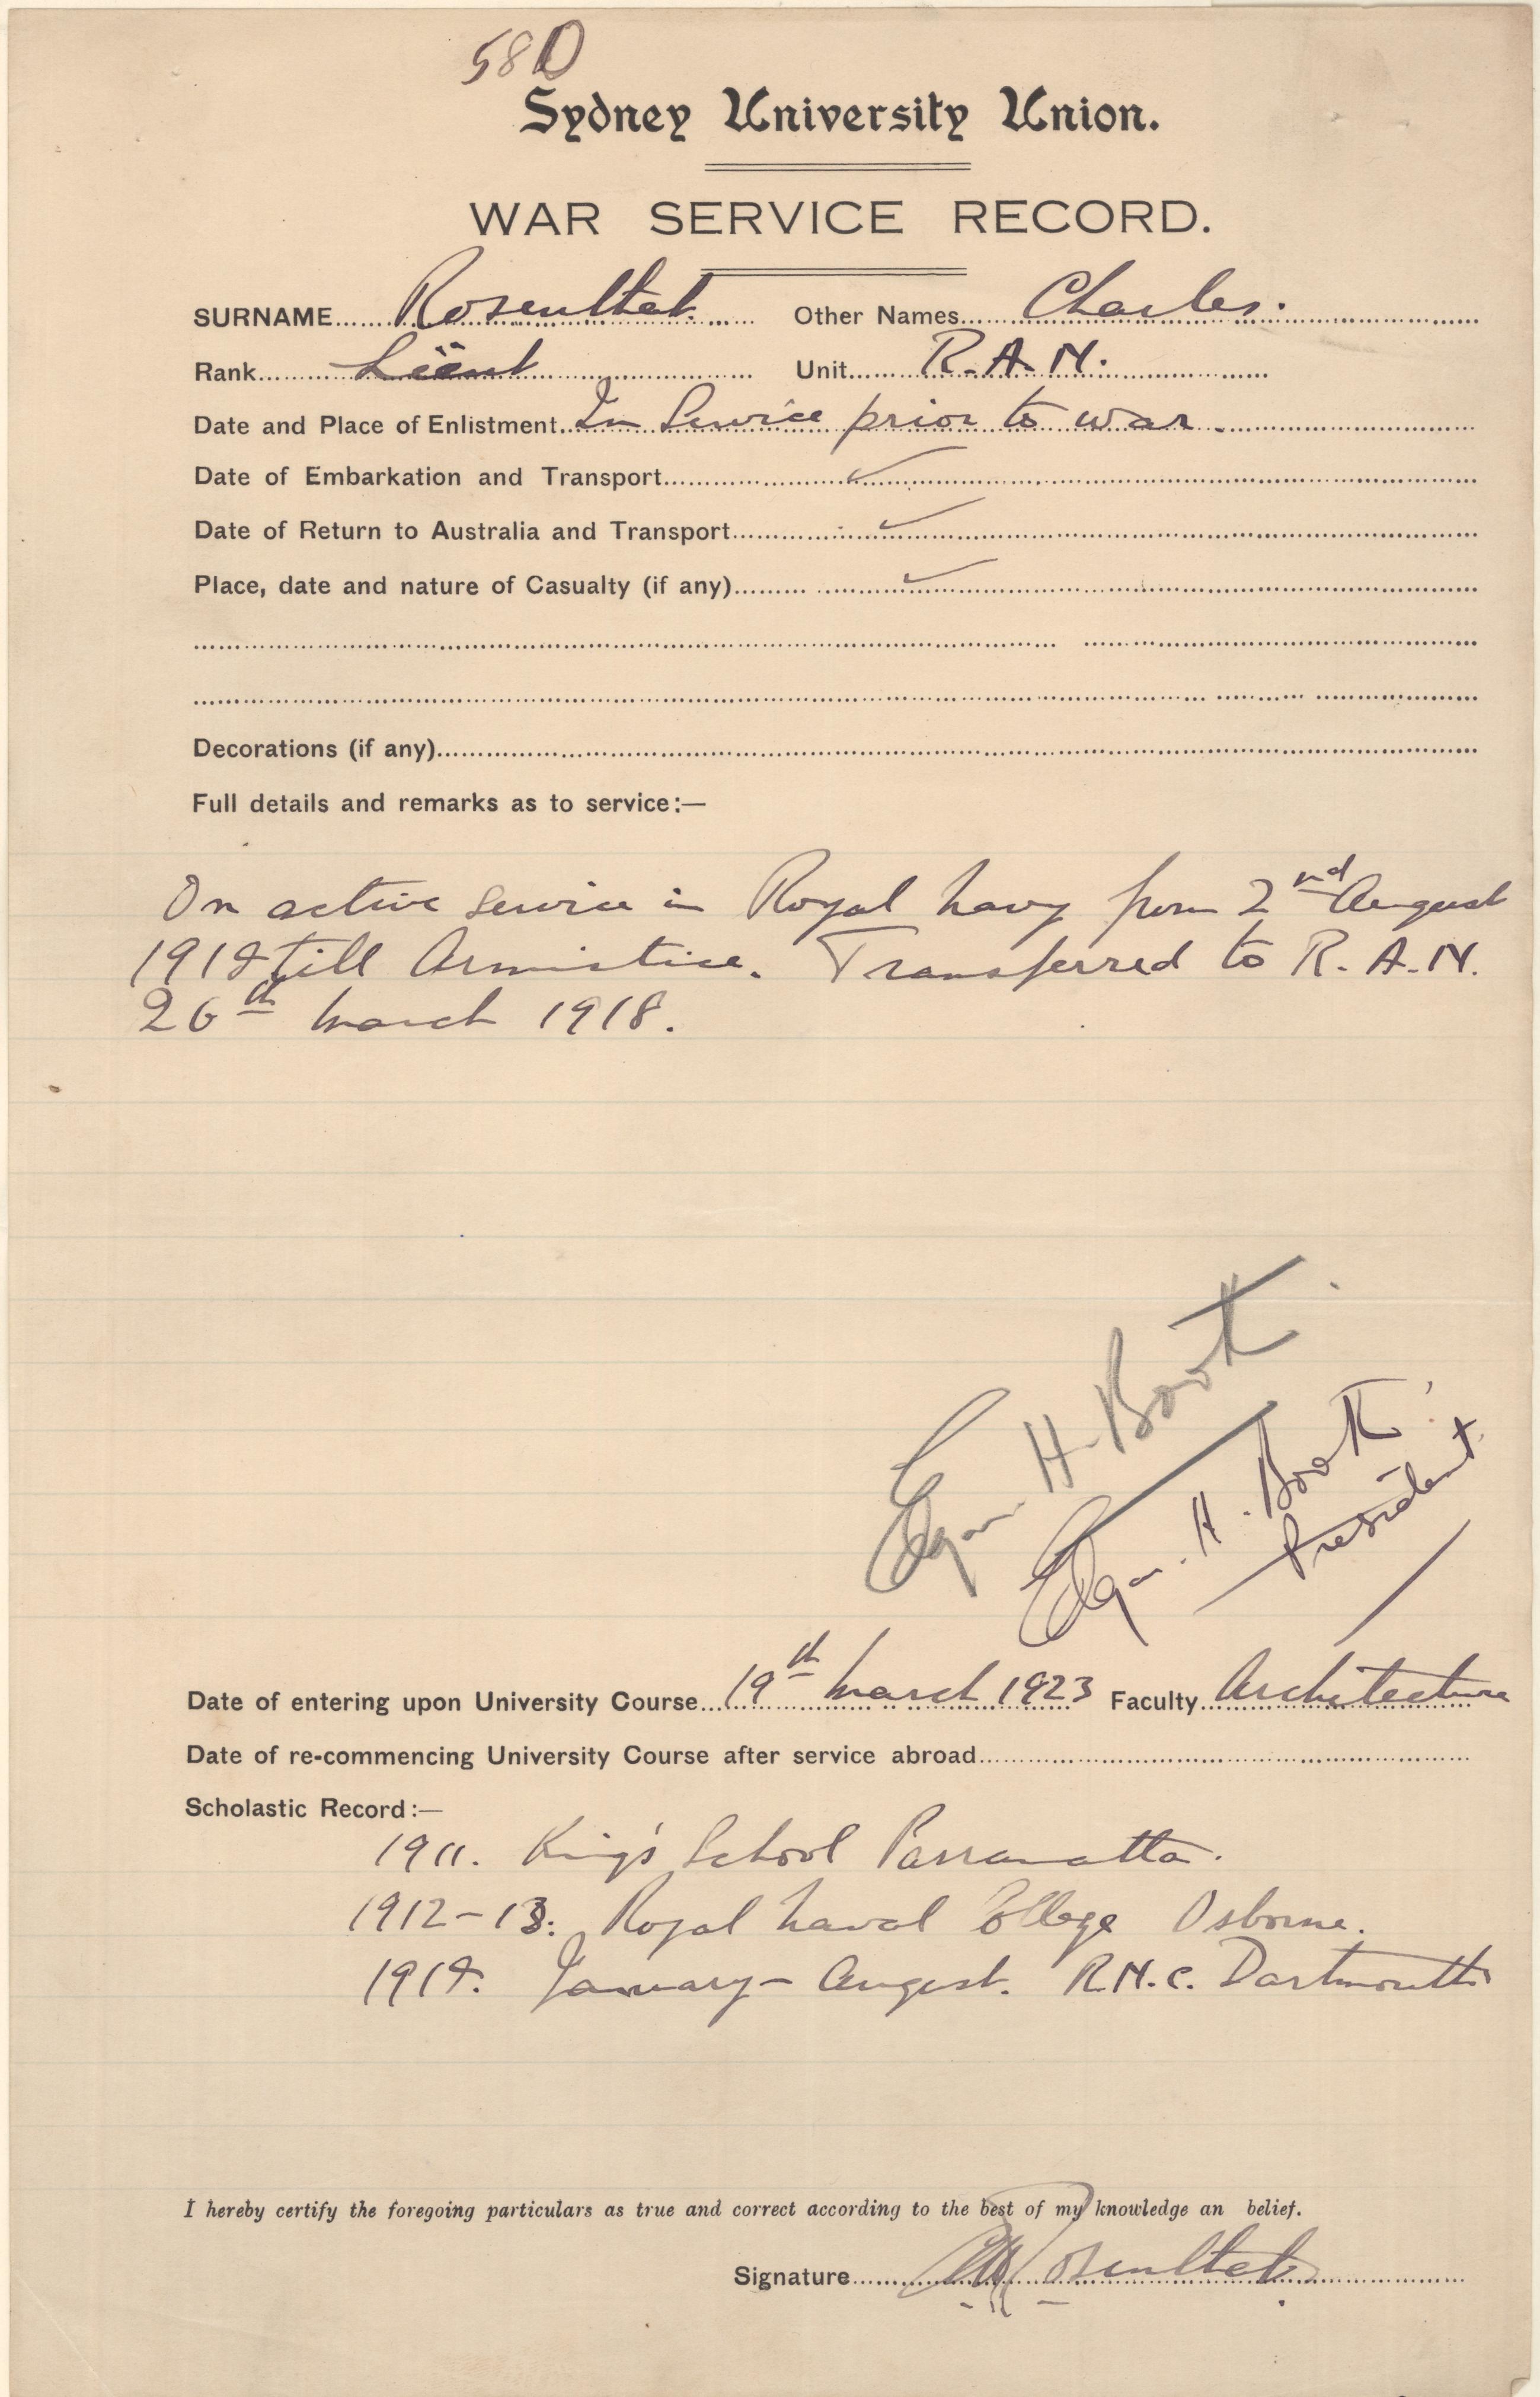 58D
Sydney University Union.
WAR SERVICE RECORD.
SURNAME Rosenthal. Other Names Charles.
Rank Lieut Unit R.A.N.
Date and Place of Enlistment In Service prior to war.
Date of Embarkation and Transport
Date of Return to Australia and Transport
Place, date and nature of Casualty (if any)
Decorations (if any)
Full details and remarks as to service:—
On active service in Royal Navy from 2nd August
1914 till Armistice. Transferred to R.A.N.
26th March 1918.
Edgar H. Booth.
Edgar H. Booth
President
Date of entering upon University Course 19th March 1923 Faculty Architecture
Date of re-commencing University Course after service abroad
Scholastic Record:—
1911. King's School Parramatta.
1912-13. Royal Naval College Osborne.
1914. January - August. R.N.C. Dartmouth
I hereby certify the foregoing particulars as true and correct according to the best of my knowledge an belief.
Signature Rosenthal